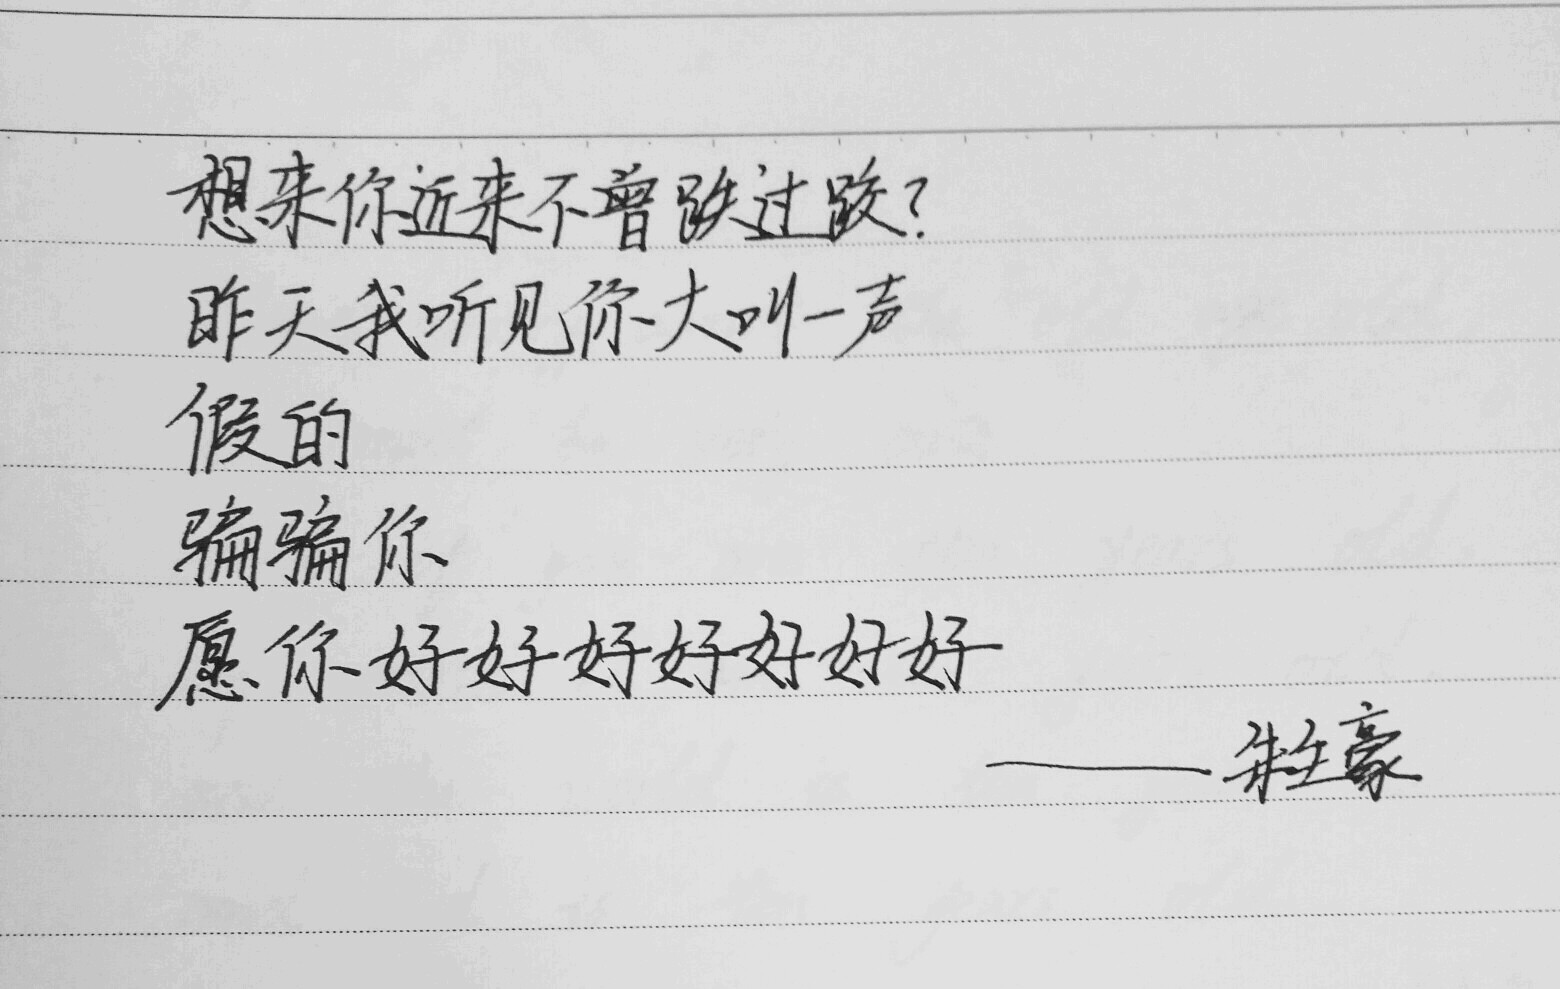 想来你近来不曾跌过跤？
昨天我听见你大叫一声
假的
骗骗你
愿你好好好好好好好
——朱生豪